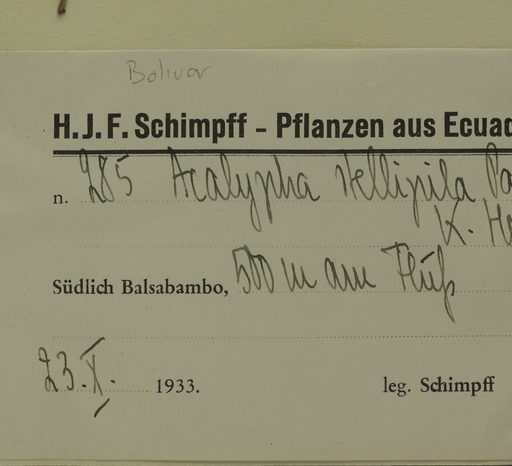 Bolivar
H.J.F. Schimpff - Pflanzen aus Ecuad
n. 285 Acalypha stellipila Pa
K. H
Südlich Balsabambo, 500 m am Fluß
23. X. 1933. leg. Schimpff